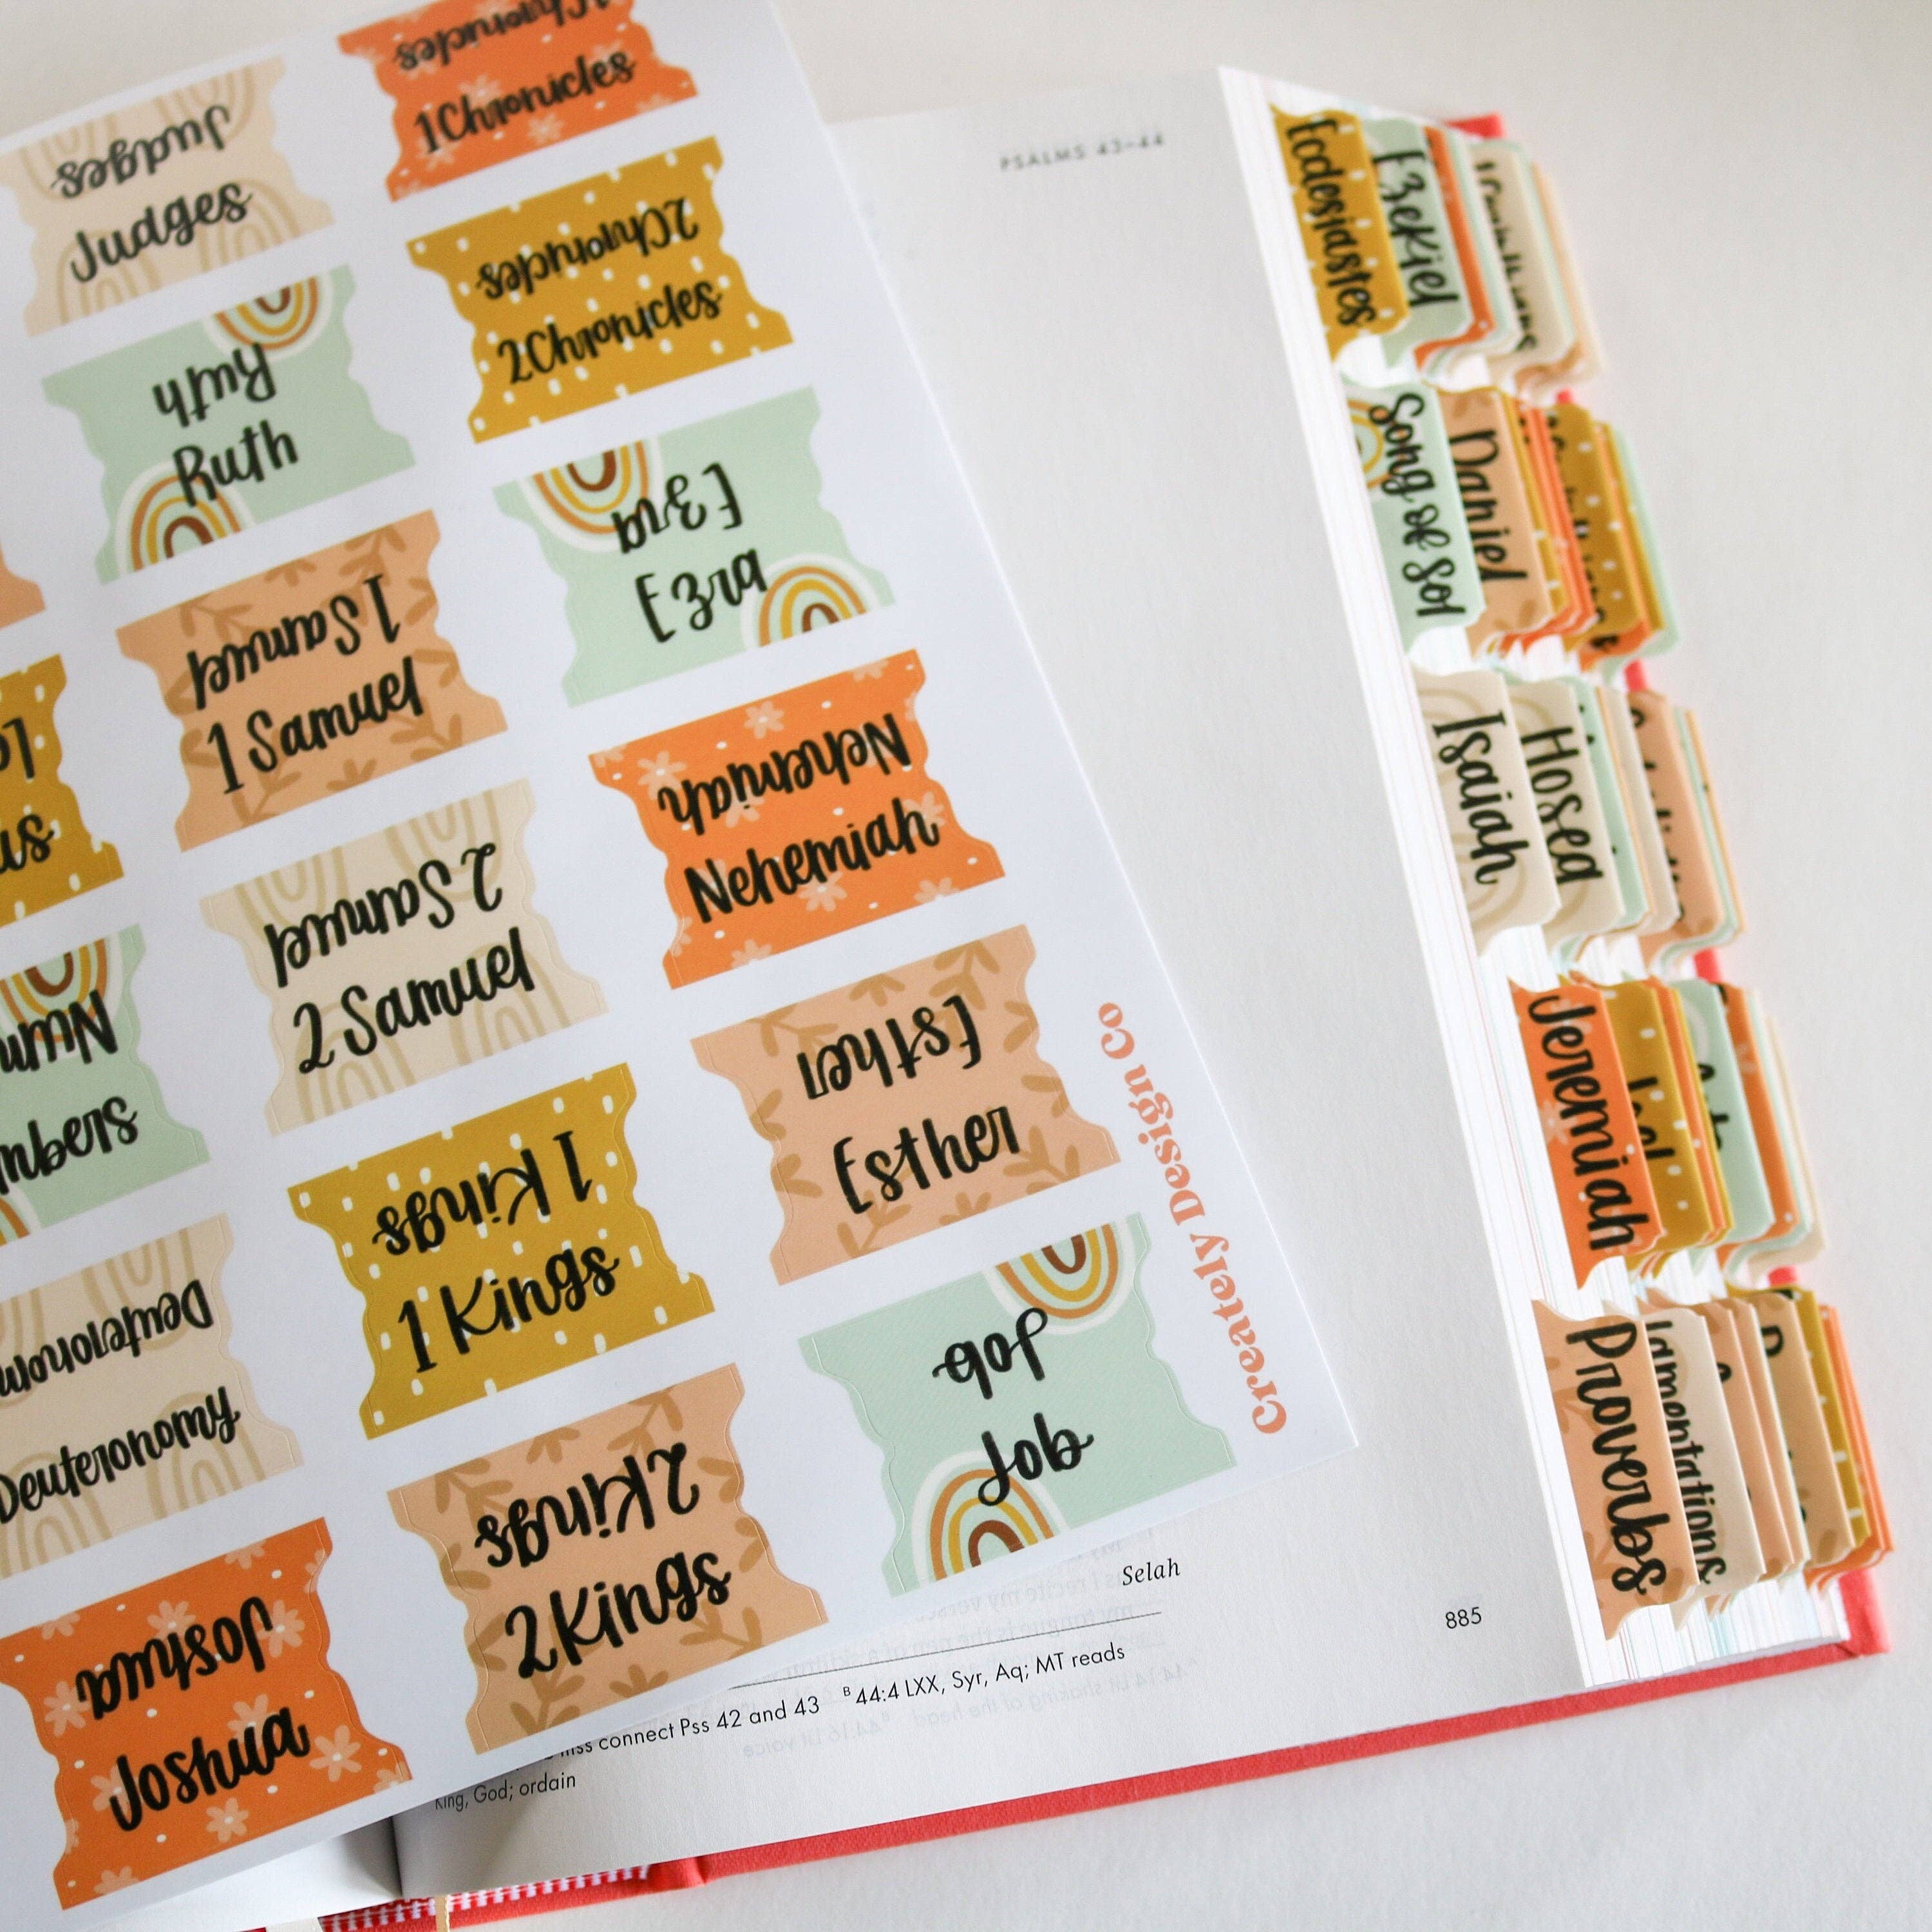 Chronicles
1Chronicles
Judges
Judges
2Chronicles
2Chronicles
Ruth
Ruth
Ezra
Ezra
1 Samuel
1 Samuel
Nehemiah
Nehemiah
2 Samuel
2 Samuel
Esther
Esther
Num
mbers
1 Kings
1 Kings
Job
Job
Deuteronom
Deuteronomy
2Kings
2Kings
Joshua
Joshua
us
Creately Design Co
PSALMS 43–44
Selah
mss connect Pss 42 and 43 B 44:4 LXX, Syr, Aq; MT reads
King, God; ordain
885
Ecclesiastes
Ezekiel
Song of Sol
Daniel
Isaiah
Hosea
Jeremiah
Joel
Proverbs
Lamentations